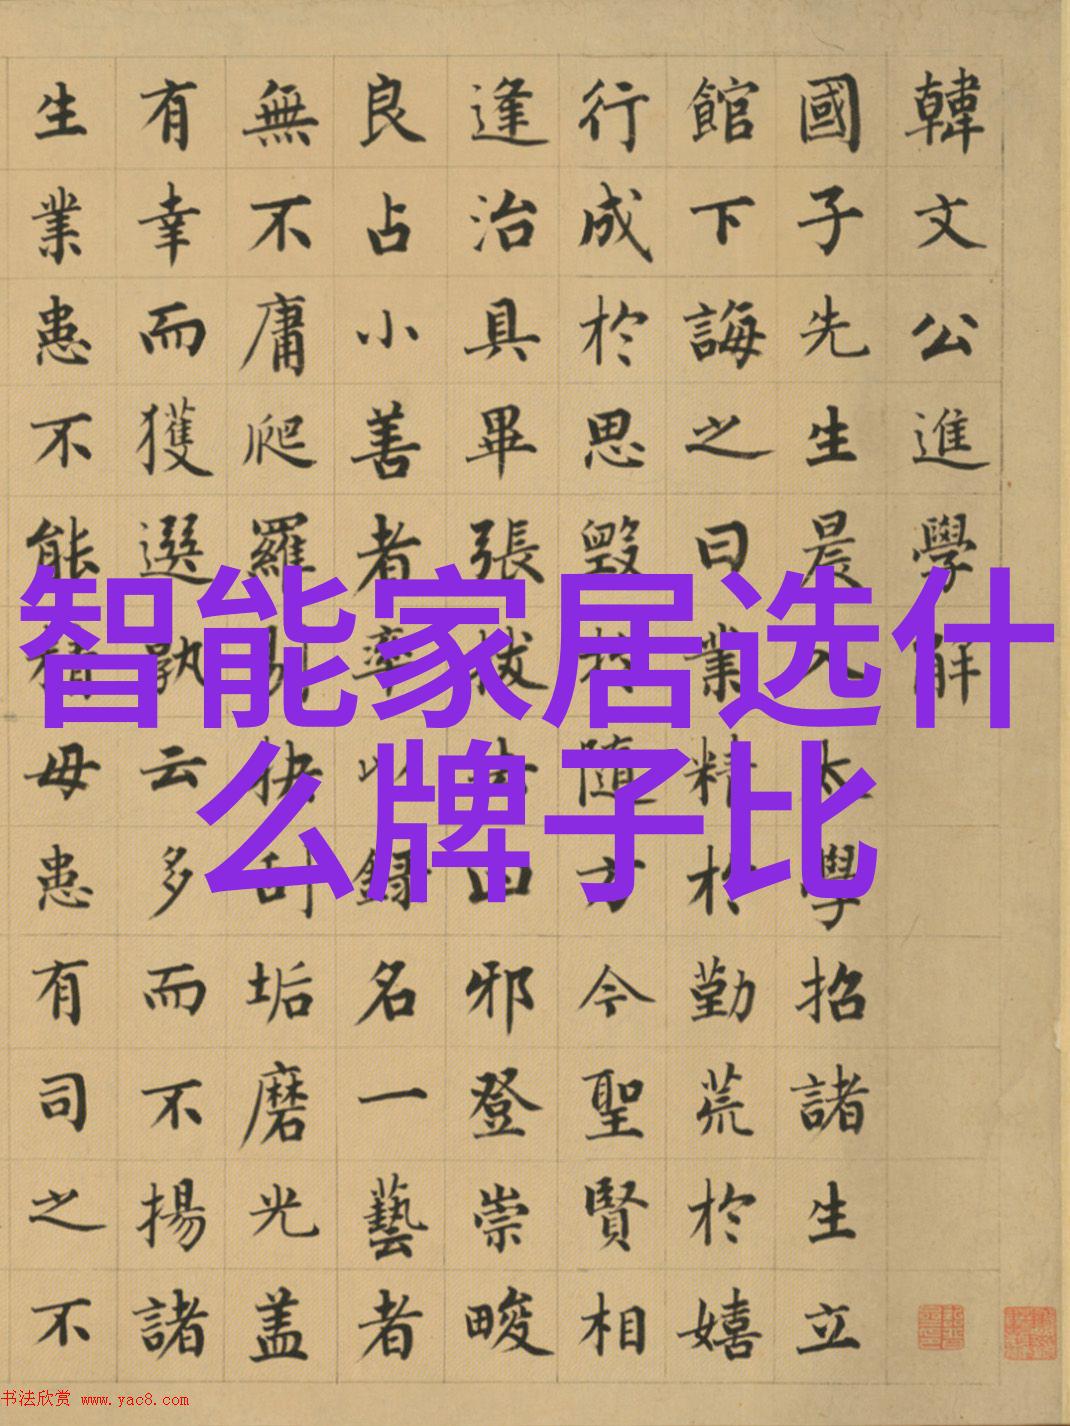 韓文公進學解
國子先生晨入太學招諸生立
館下誨之曰業精於勤荒於嬉
行成於思毀於隨方今聖賢相
逢治具畢張拔去凶邪登崇畯
良占小善者率以録名一藝者
無不庸爬羅剔抉刮垢磨光盖
有幸而獲選孰云多而不揚諸
生業患不能精毋患有司之不
智能家居选什
么牌子比
书法欣赏 www.yac8.com